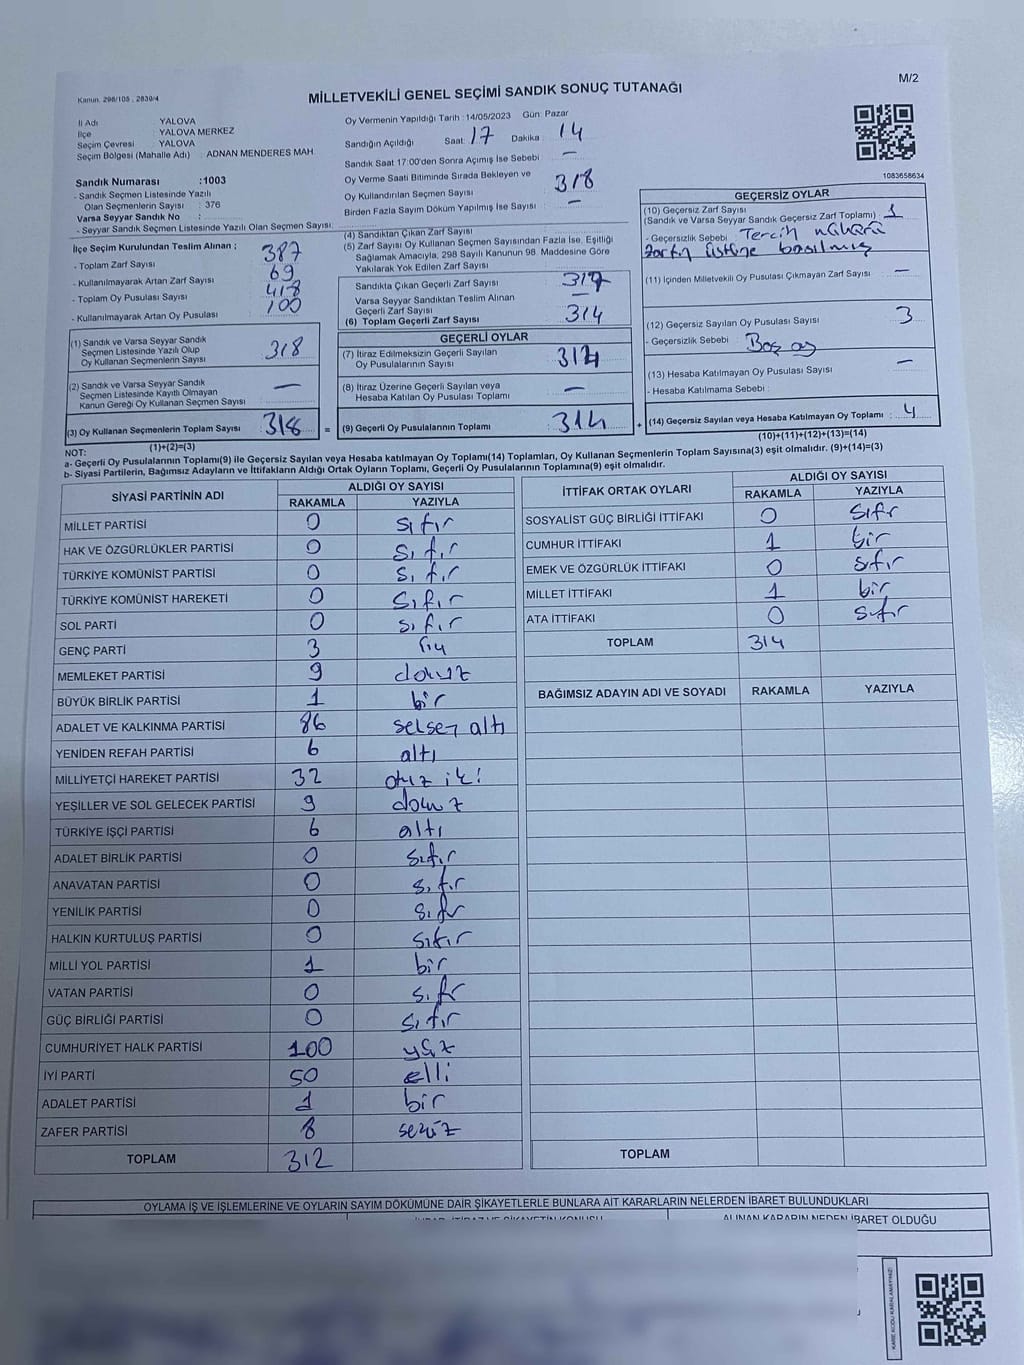 M/2
Kanun. 298/105 , 2839/4
MİLLETVEKİLİ GENEL SEÇİMİ SANDIK SONUÇ TUTANAĞI
İl Adı YALOVA
İlçe : YALOVA MERKEZ
Seçim Çevresi YALOVA
Seçim Bölgesi (Mahalle Adı) : ADNAN MENDERES MAH.
Sandık Numarası :1003
- Sandık Seçmen Listesinde Yazılı
Olan Seçmenlerin Sayısı : 376
Varsa Seyyar Sandık No :
- Seyyar Sandık Seçmen Listesinde Yazılı Olan Seçmen Sayısı:
Oy Vermenin Yapıldığı Tarih : 14/05/2023 Gün: Pazar
Sandığın Açıldığı Saat: 17 Dakika : 14
Sandık Saat 17:00'den Sonra Açımış İse Sebebi : —
Oy Verme Saati Bitiminde Sırada Bekleyen ve
Oy Kullandırılan Seçmen Sayısı : 318
Birden Fazla Sayım Döküm Yapılmış İse Sayısı : —
1083658634
İlçe Seçim Kurulundan Teslim Alınan ;
- Toplam Zarf Sayısı : 387
- Kullanılmayarak Artan Zarf Sayısı : 69
- Toplam Oy Pusulası Sayısı : 418
- Kullanılmayarak Artan Oy Pusulası : 100
(1) Sandık ve Varsa Seyyar Sandık
Seçmen Listesinde Yazılı Olup
Oy Kullanan Seçmenlerin Sayısı : 318
(2) Sandık ve Varsa Seyyar Sandık
Seçmen Listesinde Kayıtlı Olmayan
Kanun Gereği Oy Kullanan Seçmen Sayısı : —
(3) Oy Kullanan Seçmenlerin Toplam Sayısı : 318 =
(1)+(2)=(3)
(4) Sandıktan Çıkan Zarf Sayısı :
(5) Zarf Sayısı Oy Kullanan Seçmen Sayısından Fazla İse, Eşitliği
Sağlamak Amacıyla, 298 Sayılı Kanunun 98. Maddesine Göre
Yakılarak Yok Edilen Zarf Sayısı :
Sandıkta Çıkan Geçerli Zarf Sayısı : 317
Varsa Seyyar Sandıktan Teslim Alınan
Geçerli Zarf Sayısı : —
(6) Toplam Geçerli Zarf Sayısı : 314
GEÇERLİ OYLAR
(7) İtiraz Edilmeksizin Geçerli Sayılan
Oy Pusulasının Sayısı : 314
(8) İtiraz Üzerine Geçerli Sayılan veya
Hesaba Katılan Oy Pusulası Toplamı : —
(9) Geçerli Oy Pusulalarının Toplamı : 314 +
GEÇERSİZ OYLAR
(10) Geçersiz Zarf Sayısı
(Sandık ve Varsa Seyyar Sandık Geçersiz Zarf Toplamı) : 1
- Geçersizlik Sebebi : Tercih mührü
zarfın üstüne basılmış
(11) İçinden Milletvekili Oy Pusulası Çıkmayan Zarf Sayısı : —
(12) Geçersiz Sayılan Oy Pusulası Sayısı : 3
- Geçersizlik Sebebi : Boş oy
(13) Hesaba Katılmayan Oy Pusulası Sayısı : —
- Hesaba Katılmama Sebebi :
(14) Geçersiz Sayılan veya Hesaba Katılmayan Oy Toplamı : 4
(10)+(11)+(12)+(13)=(14)
NOT:
a- Geçerli Oy Pusulalarının Toplamı(9) ile Geçersiz Sayılan veya Hesaba katılmayan Oy Toplamı(14) Toplamları, Oy Kullanan Seçmenlerin Toplam Sayısına(3) eşit olmalıdır. (9)+(14)=(3)
b- Siyasi Partilerin, Bağımsız Adayların ve İttifakların Aldığı Ortak Oyların Toplamı, Geçerli Oy Pusulalarının Toplamına(9) eşit olmalıdır.
SİYASİ PARTİNİN ADI ALDIĞI OY SAYISI
RAKAMLA YAZIYLA
MİLLET PARTİSİ 0 sıfır
HAK VE ÖZGÜRLÜKLER PARTİSİ 0 sıfır
TÜRKİYE KOMÜNİST PARTİSİ 0 sıfır
TÜRKİYE KOMÜNİST HAREKETİ 0 sıfır
SOL PARTİ 0 sıfır
GENÇ PARTİ 3
MEMLEKET PARTİSİ 9 dokuz
BÜYÜK BİRLİK PARTİSİ 1 bir
ADALET VE KALKINMA PARTİSİ 86 seksen altı
YENİDEN REFAH PARTİSİ 6 altı
MİLLİYETÇİ HAREKET PARTİSİ 32 otuz iki
YEŞİLLER VE SOL GELECEK PARTİSİ 9 dokuz
TÜRKİYE İŞÇİ PARTİSİ 6 altı
ADALET BİRLİK PARTİSİ 0 sıfır
ANAVATAN PARTİSİ 0 sıfır
YENİLİK PARTİSİ 0 sıfır
HALKIN KURTULUŞ PARTİSİ 0 sıfır
MİLLİ YOL PARTİSİ 1 bir
VATAN PARTİSİ 0 sıfır
GÜÇ BİRLİĞİ PARTİSİ 0 sıfır
CUMHURİYET HALK PARTİSİ 100 yüz
İYİ PARTİ 50 elli
ADALET PARTİSİ 1 bir
ZAFER PARTİSİ 8 sekiz
TOPLAM 312
İTTİFAK ORTAK OYLARI ALDIĞI OY SAYISI
RAKAMLA YAZIYLA
SOSYALİST GÜÇ BİRLİĞİ İTTİFAKI 0 sıfır
CUMHUR İTTİFAKI 1 bir
EMEK VE ÖZGÜRLÜK İTTİFAKI 0 sıfır
MİLLET İTTİFAKI 1 bir
ATA İTTİFAKI 0 sıfır
TOPLAM 314
BAĞIMSIZ ADAYIN ADI VE SOYADI RAKAMLA YAZIYLA
TOPLAM
OYLAMA İŞ VE İŞLEMLERİNE VE OYLARIN SAYIM DÖKÜMÜNE DAİR ŞİKAYETLERLE BUNLARA AİT KARARLARIN NELERDEN İBARET BULUNDUKLARI
ALINAN KARARIN NEDEN İBARET OLDUĞU
KARE KODU KARALAMAYINIZ!